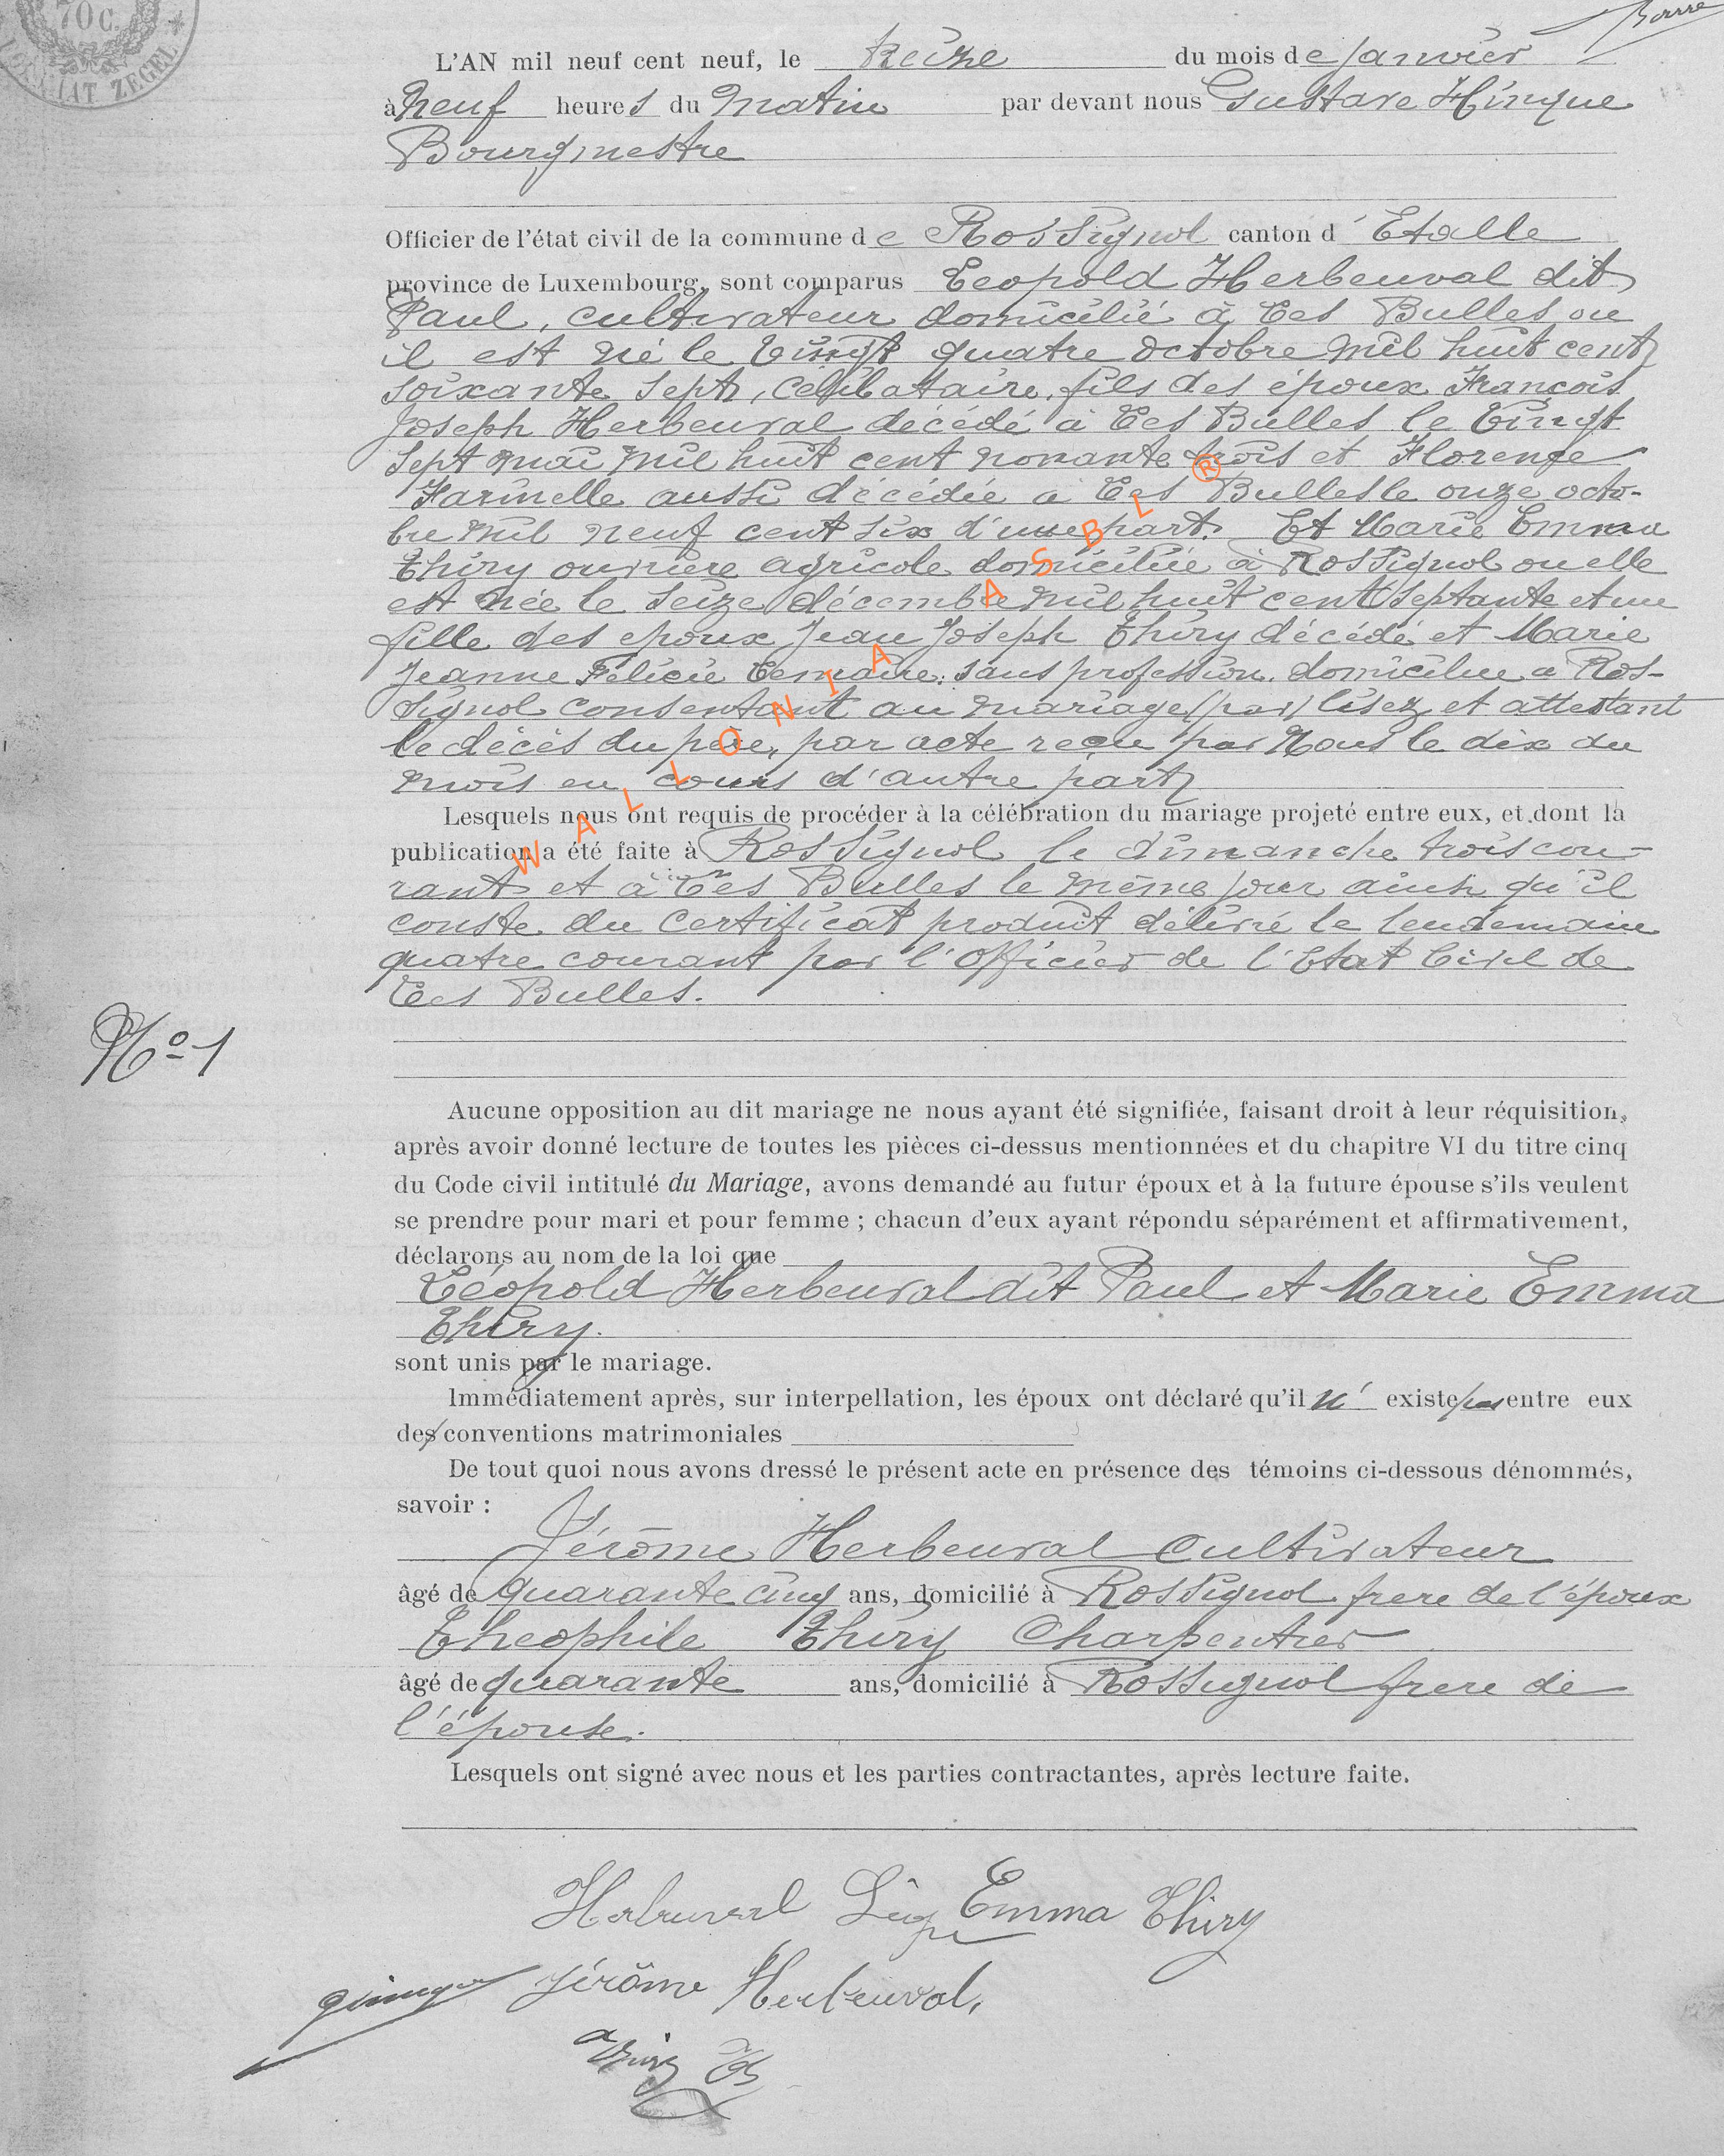 70 C.
ZEGEL
L'AN mil neuf cent neuf, le treize du mois de janvier
à Neuf heures du Matin par devant nous Gustave Hinque
Bourgmestre
Officier de l'état civil de la commune de Rossignol canton d'Etalle
province de Luxembourg, sont comparus Leopold Herbeuval dit
Paul, cultivateur domicilié à Les Bulles ou
il est né le Vingt quatre Octobre mil huit cent
soixante sept, célibataire, fils des époux François
Joseph Herbeuval décédé à Les Bulles le Vingt
Sept Mai mil huit cent nonante trois et Florence
Farinelle aussi décédée à Les Bulles le onze octo-
bre mil neuf cent six d'une part. Et Marie Emma
Thiry ouvrière agricole domiciliée à Rossignol ou elle
est née le Seize décembre mil huit cent Septante et un
fille des epoux Jean Joseph Thiry décédé et Marie
Jeanne Félicie Lemaire. sans profession. domiciliee a Ros-
signol consentant au mariage (par) lisez et attestant
le décès du père, par acte reçu par Nous le dix du
mois en cours d'autre part
Lesquels nous ont requis de procéder à la célébration du mariage projeté entre eux, et dont la
publication a été faite à Rossignol le dimanche trois cou-
rant et à Les Bulles le même jour ainsi qu'il
conste du Certificat produit délivré le lendemain
quatre courant par l'Officier de l'Etat Civil de
Les Bulles.
No 1
Aucune opposition au dit mariage ne nous ayant été signifiée, faisant droit à leur réquisition,
après avoir donné lecture de toutes les pièces ci-dessus mentionnées et du chapitre VI du titre cinq
du Code civil intitulé du Mariage, avons demandé au futur époux et à la future épouse s'ils veulent
se prendre pour mari et pour femme ; chacun d'eux ayant répondu séparément et affirmativement,
déclarons au nom de la loi que
Léopold Herbeuval dit Paul et Marie Emma
Thiry.
sont unis par le mariage.
Immédiatement après, sur interpellation, les époux ont déclaré qu'il n' existe pas entre eux
des conventions matrimoniales
De tout quoi nous avons dressé le présent acte en présence des témoins ci-dessous dénommés,
savoir :
Jérôme Herbeuval Cultivateur
âgé de quarante cinq ans, domicilié à Rossignol frere de l'époux
Theophile Thiry Charpentier
âgé de quarante ans, domicilié à Rossignol frere de
l'épouse.
Lesquels ont signé avec nous et les parties contractantes, après lecture faite.
Herbeuval Emma Thiry
Jérôme Herbeuval,
WALLONIA ASBL ®